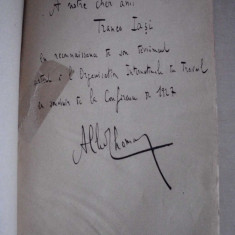 A notre cher ami
Franco Iași
en reconnaissance de son
et à l'Organisation Internationale du Travail
de la Conférence de 1927
Albert Thomas